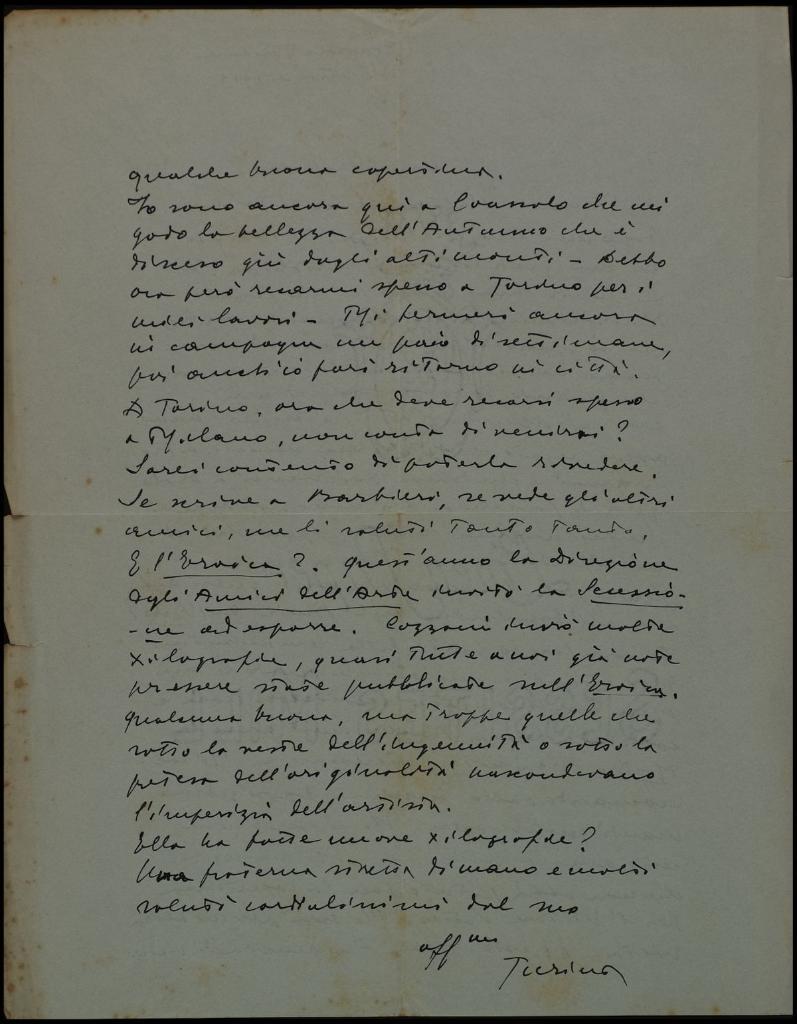 qualche buona copertina.
Io sono ancora qui a che mi
godo la bellezza dell'Autunno che è
disceso giù dagli alti monti – Debbo
ora però recarmi spesso a Torino per i
miei lavori – Mi fermerò ancora
in campagna un paio di settimane,
poi anch'io farò ritorno in città.
A Torino, ora che deve recarsi spesso
a Milano, non conta di venirci?
Sarei contento di poterla rivedere.
Se scrive a Barbieri, se vede gli altri
amici, me li saluti tanto tanto.
E l'Eroica?. Quest'anno la Direzione
degli Amici dell'Arte invitò la Secessio-
-ne ad esporre. Cozzani inviò molte
xilografie, quasi tutte a noi già note
per essere state pubblicate sull'Eroica.
Qualcuna buona, ma troppe quelle che
sotto la veste dell'ingenuità o sotto la
pretesa dell'originalità nascondevano
l'imperizia dell'artista.
Ella ha fatte nuove xilografie?
Una fraterna stretta di mano e molti
saluti cordialissimi dal suo
aff mo